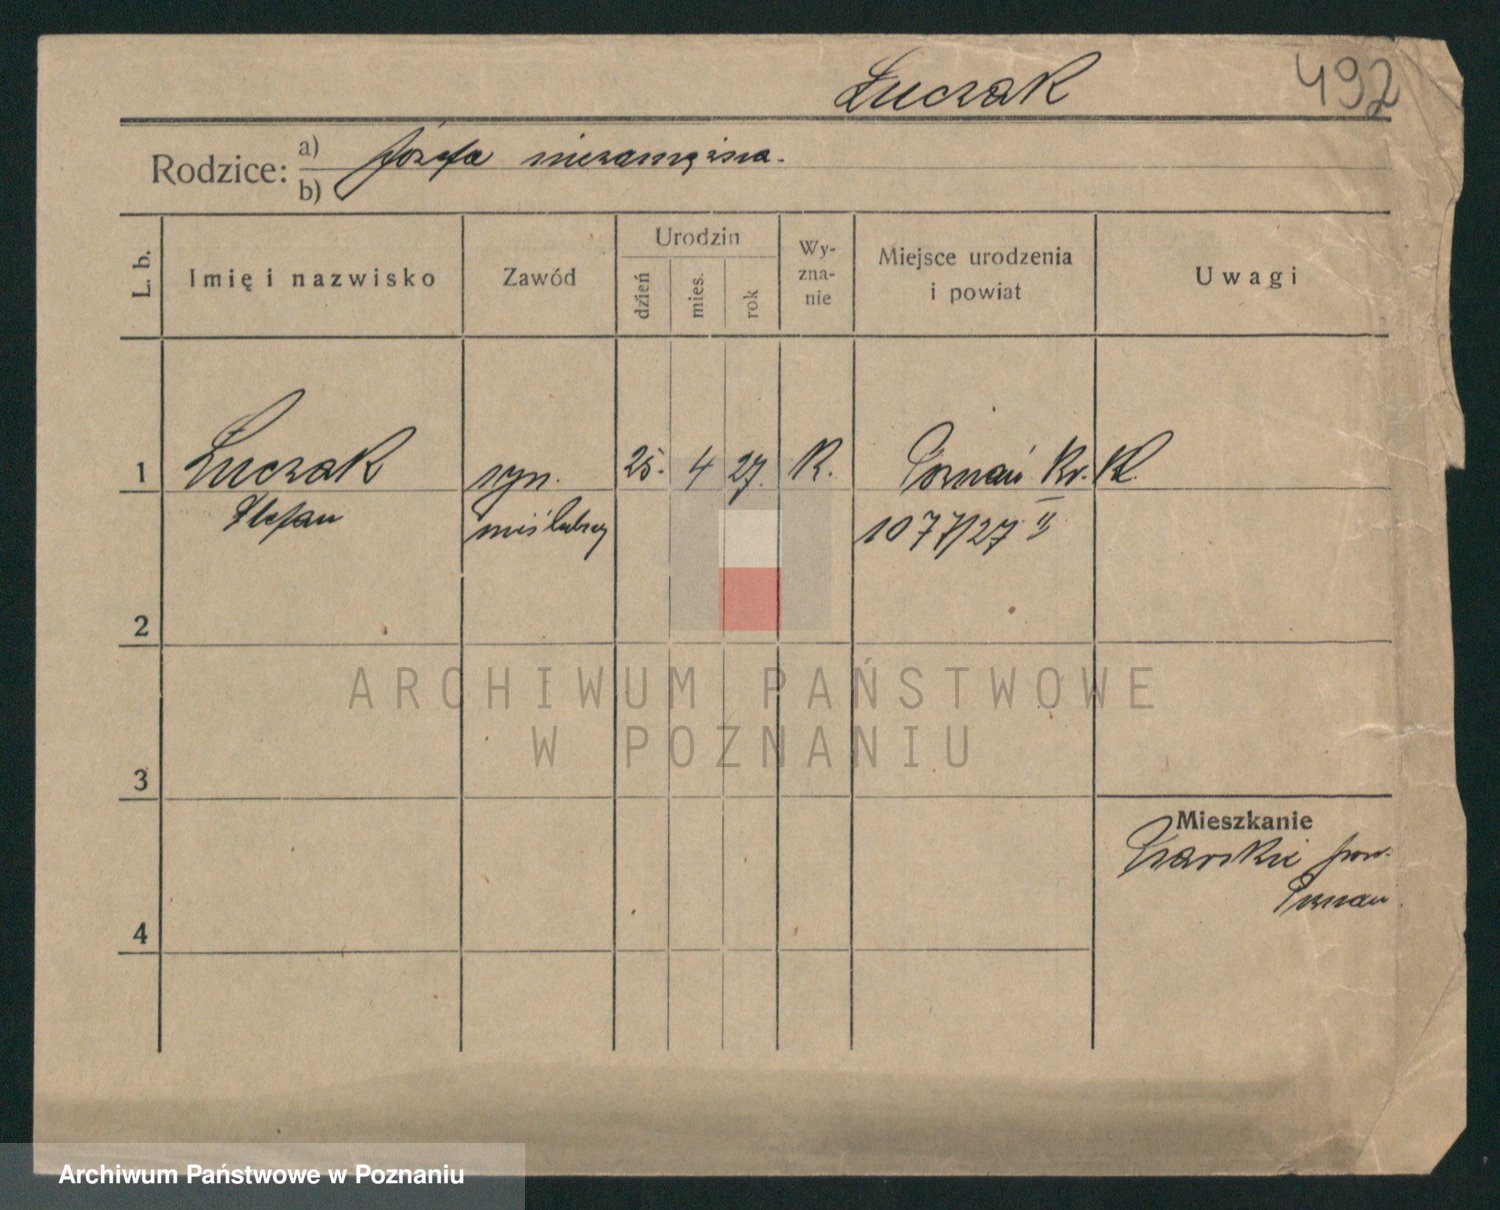 Łuczak
492
Rodzice: a) Józefa niezamężna.
b)
L. b.
Imię i nazwisko
Zawód
Urodzin
dzień
mies.
rok
Wy-
zna-
nie
Miejsce urodzenia
i powiat
Uwagi
1 Łuczak syn. 25. 4 27. R. Poznań
Stefan nieślubny 1077/27 II
2
3
4
Mieszkanie
pow.
Poznań.
ARCHIWUM PAŃSTWOWE
W POZNANIU
Archiwum Państwowe w Poznaniu